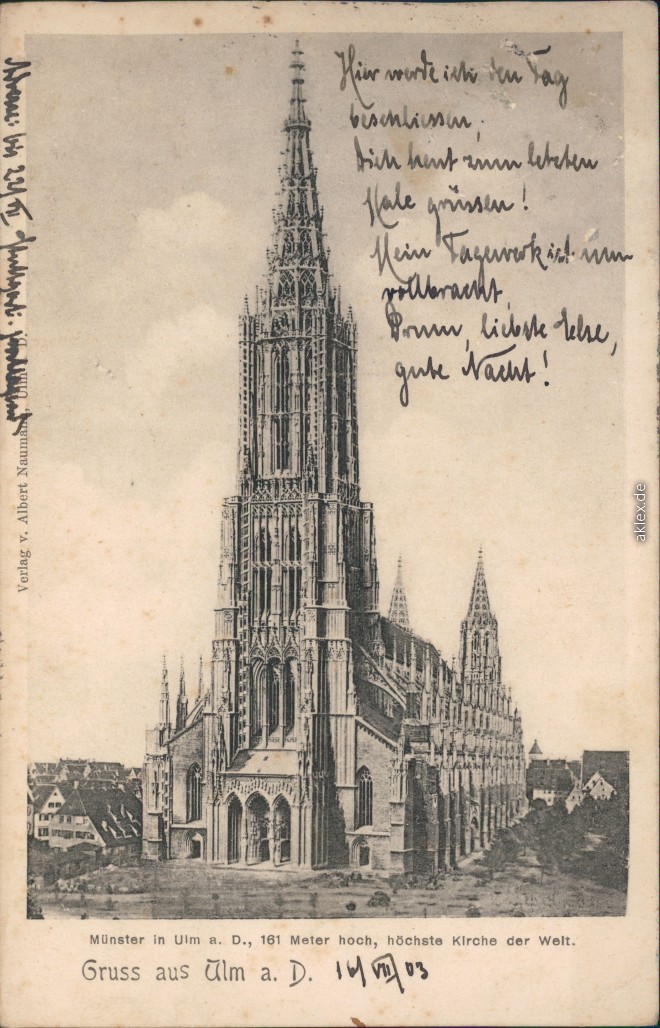 Hier werde ich den Tag
beschliessen,
Dich heut zum letzten
Male grüssen!
Mein Tagewerk ist nun
vollbracht,
Drum, liebste Else,
gute Nacht!
Verlag v. Albert Naumann, Ulm a. D.
aklex.de
Münster in Ulm a. D., 161 Meter hoch, höchste Kirche der Welt.
Gruss aus Ulm a. D. 16/VII/03